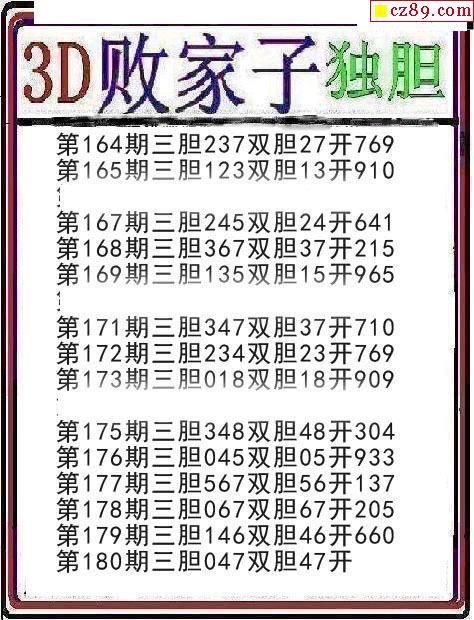 cz89.com
3D败家子独胆
第164期三胆237双胆27开769
第165期三胆123双胆13开910
第167期三胆245双胆24开641
第168期三胆367双胆37开215
第169期三胆135双胆15开965
第171期三胆347双胆37开710
第172期三胆234双胆23开769
第173期三胆018双胆18开909
第175期三胆348双胆48开304
第176期三胆045双胆05开933
第177期三胆567双胆56开137
第178期三胆067双胆67开205
第179期三胆146双胆46开660
第180期三胆047双胆47开